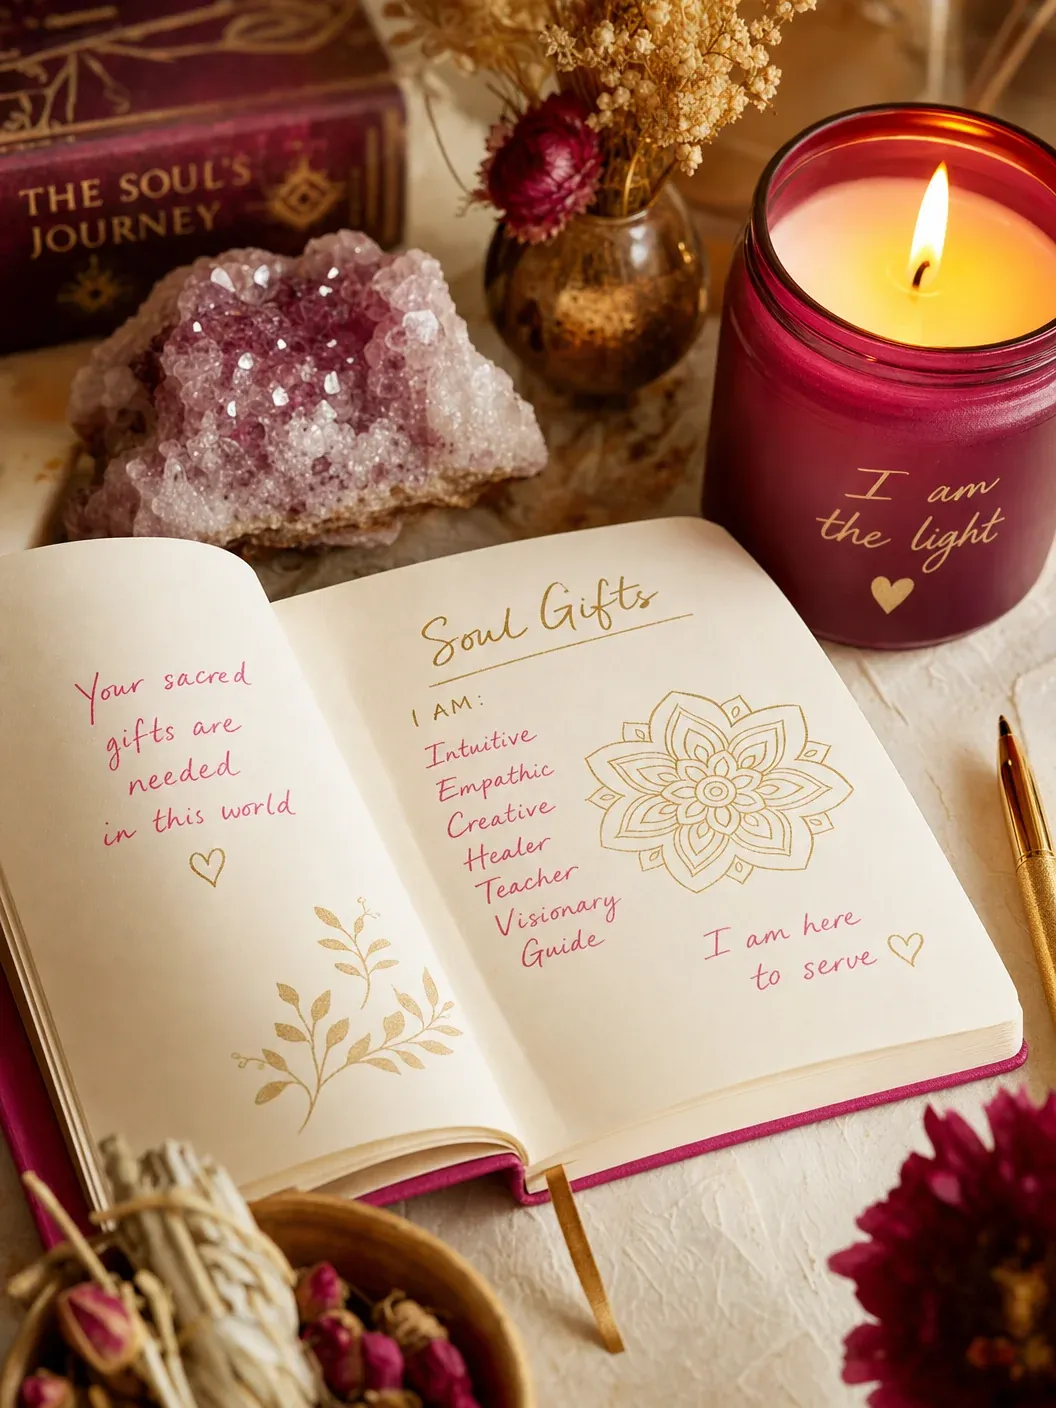 THE SOUL'S
JOURNEY
I am
the light
Your sacred
gifts are
needed
in this world
Soul Gifts
I AM:
Intuitive
Empathic
Creative
Healer
Teacher
Visionary
Guide
I am here
to serve